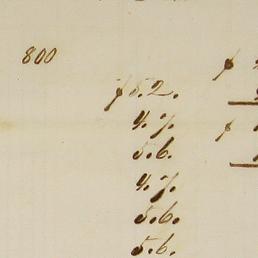 800
$5.2.
4.7.
5.6.
4.7.
5.6.
5.6.